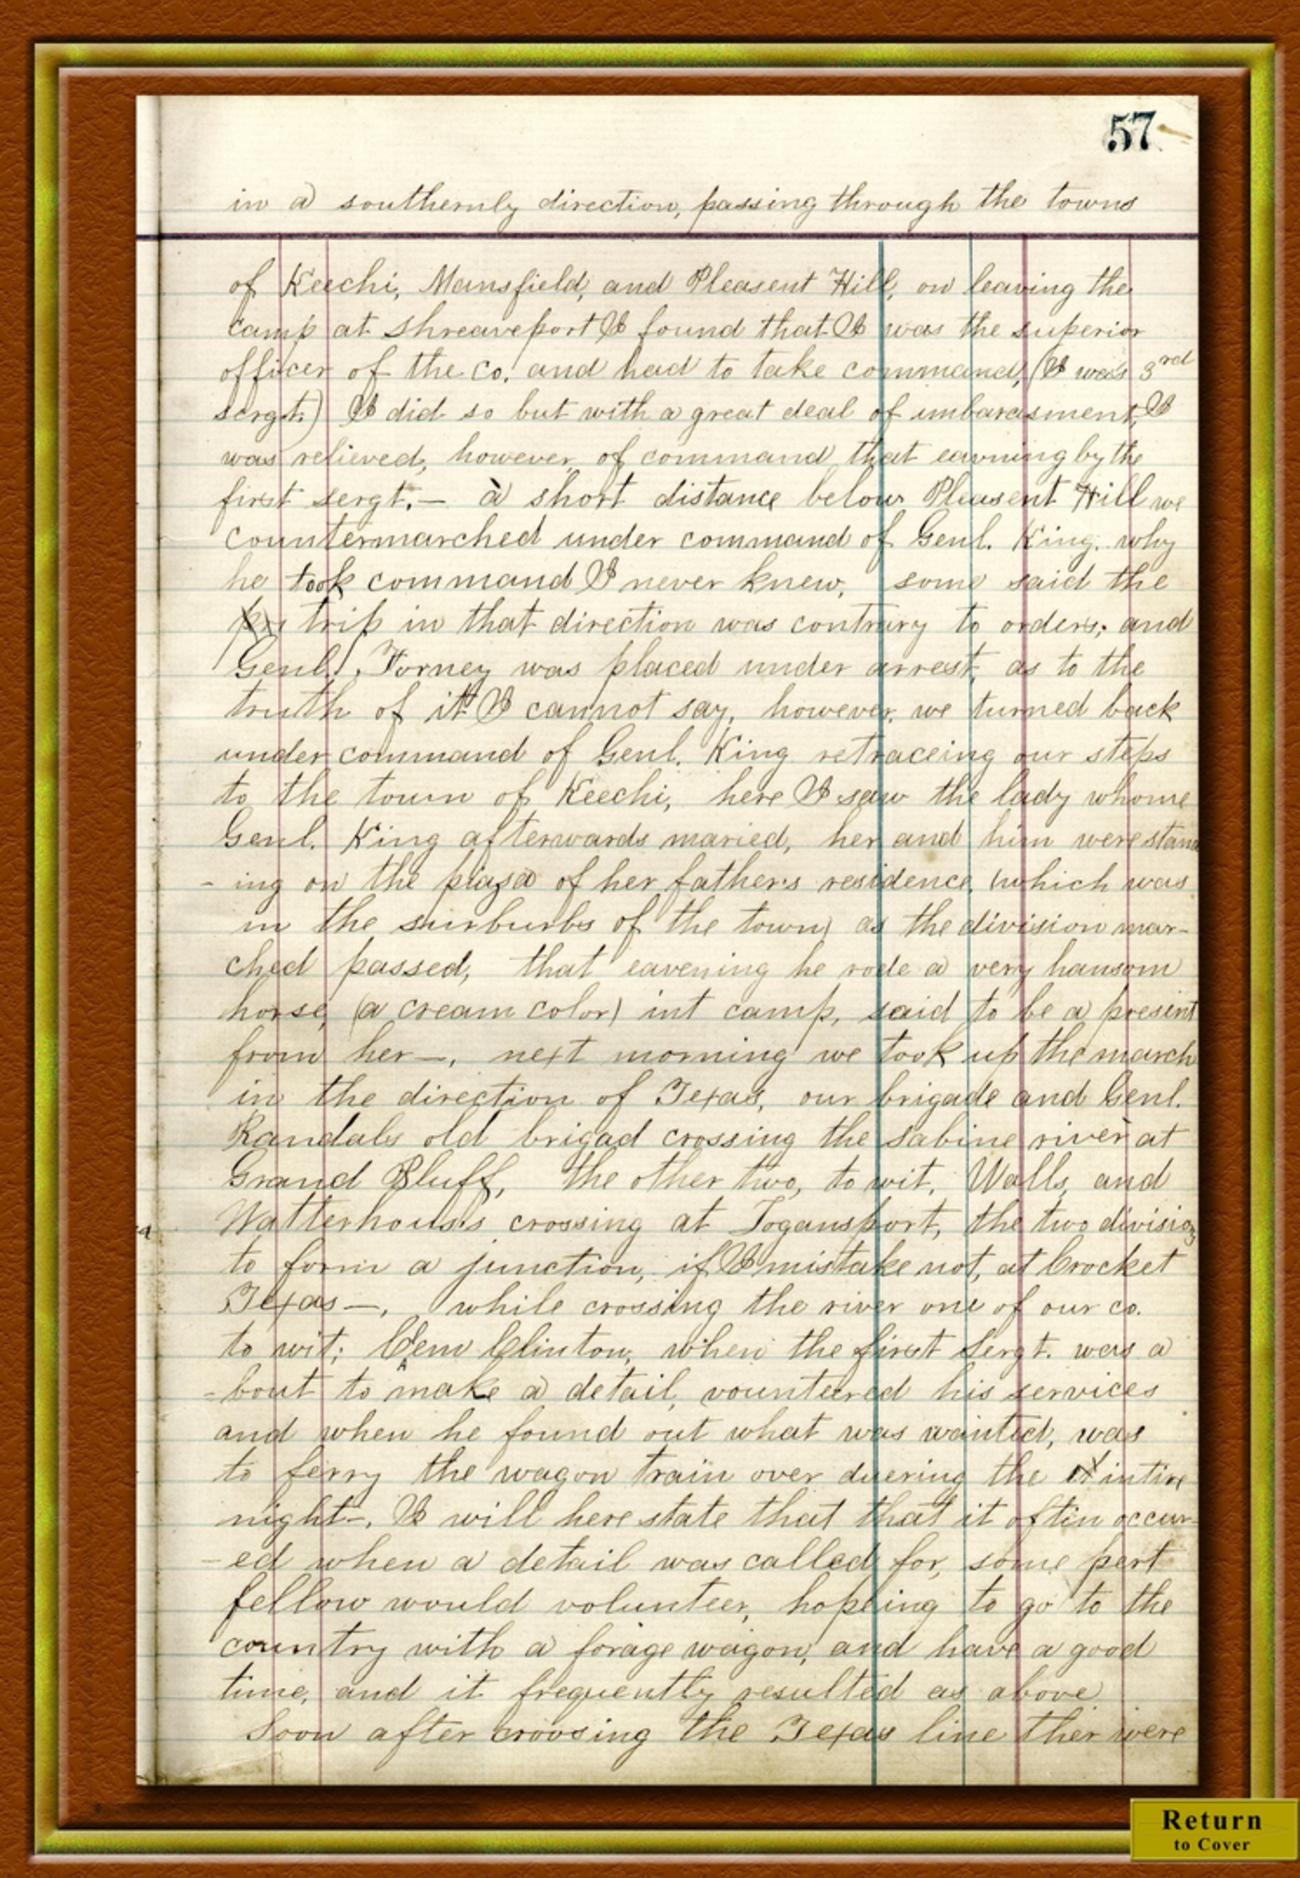 57
in a southernly direction, passing through the towns
of Keechi, Mansfield, and Pleasent Hill, on leaving the
camp at Shreaveport I found that I was the superior
officer of the co. and had to take command, (I was 3rd
sergt.) I did so but with a great deal of imbarasment, I
was relieved, however, of command that eavning by the
first sergt. — a short distance below Pleasent Hill we
countermarched under command of Genl. King. why
he took command I never knew, some said the
trip in that direction was contrary to orders, and
Genl. Forney was placed under arrest, as to the
truth of it I cannot say, however, we turned back
under command of Genl. King retraceing our steps
to the town of Keechi, here I saw the lady whome
Genl. King afterwards maried, her and him were stand
- ing on the plaza of her father's residence, (which was
in the surburbs of the town) as the division mar-
ched passed, that eavening he rode a very hansom
horse, (a cream color) int camp, said to be a present
from her —, next morning we took up the march
in the direction of Texas, our brigade and Genl.
Randals old brigad crossing the Sabine river at
Grand Bluff, the other two, to wit, Walls, and
Watterhouses crossing at Logansport, the two division
to form a junction, if I mistake not, at Crocket
Texas —, while crossing the river one of our co.
to wit; Clem Clinton, when the first Sergt. was a
- bout to make a detail, vounteered his services
and when he found out what was wanted, was
to ferry the wagon train over duering the intire
night —. I will here state that that it oftin occur-
- ed when a detail was called for, some pert
fellow would volunteer, hopeing to go to the
country with a forage wagon, and have a good
time, and it frequently resulted as above
Soon after crossing the Texas line ther were
Return
to Cover